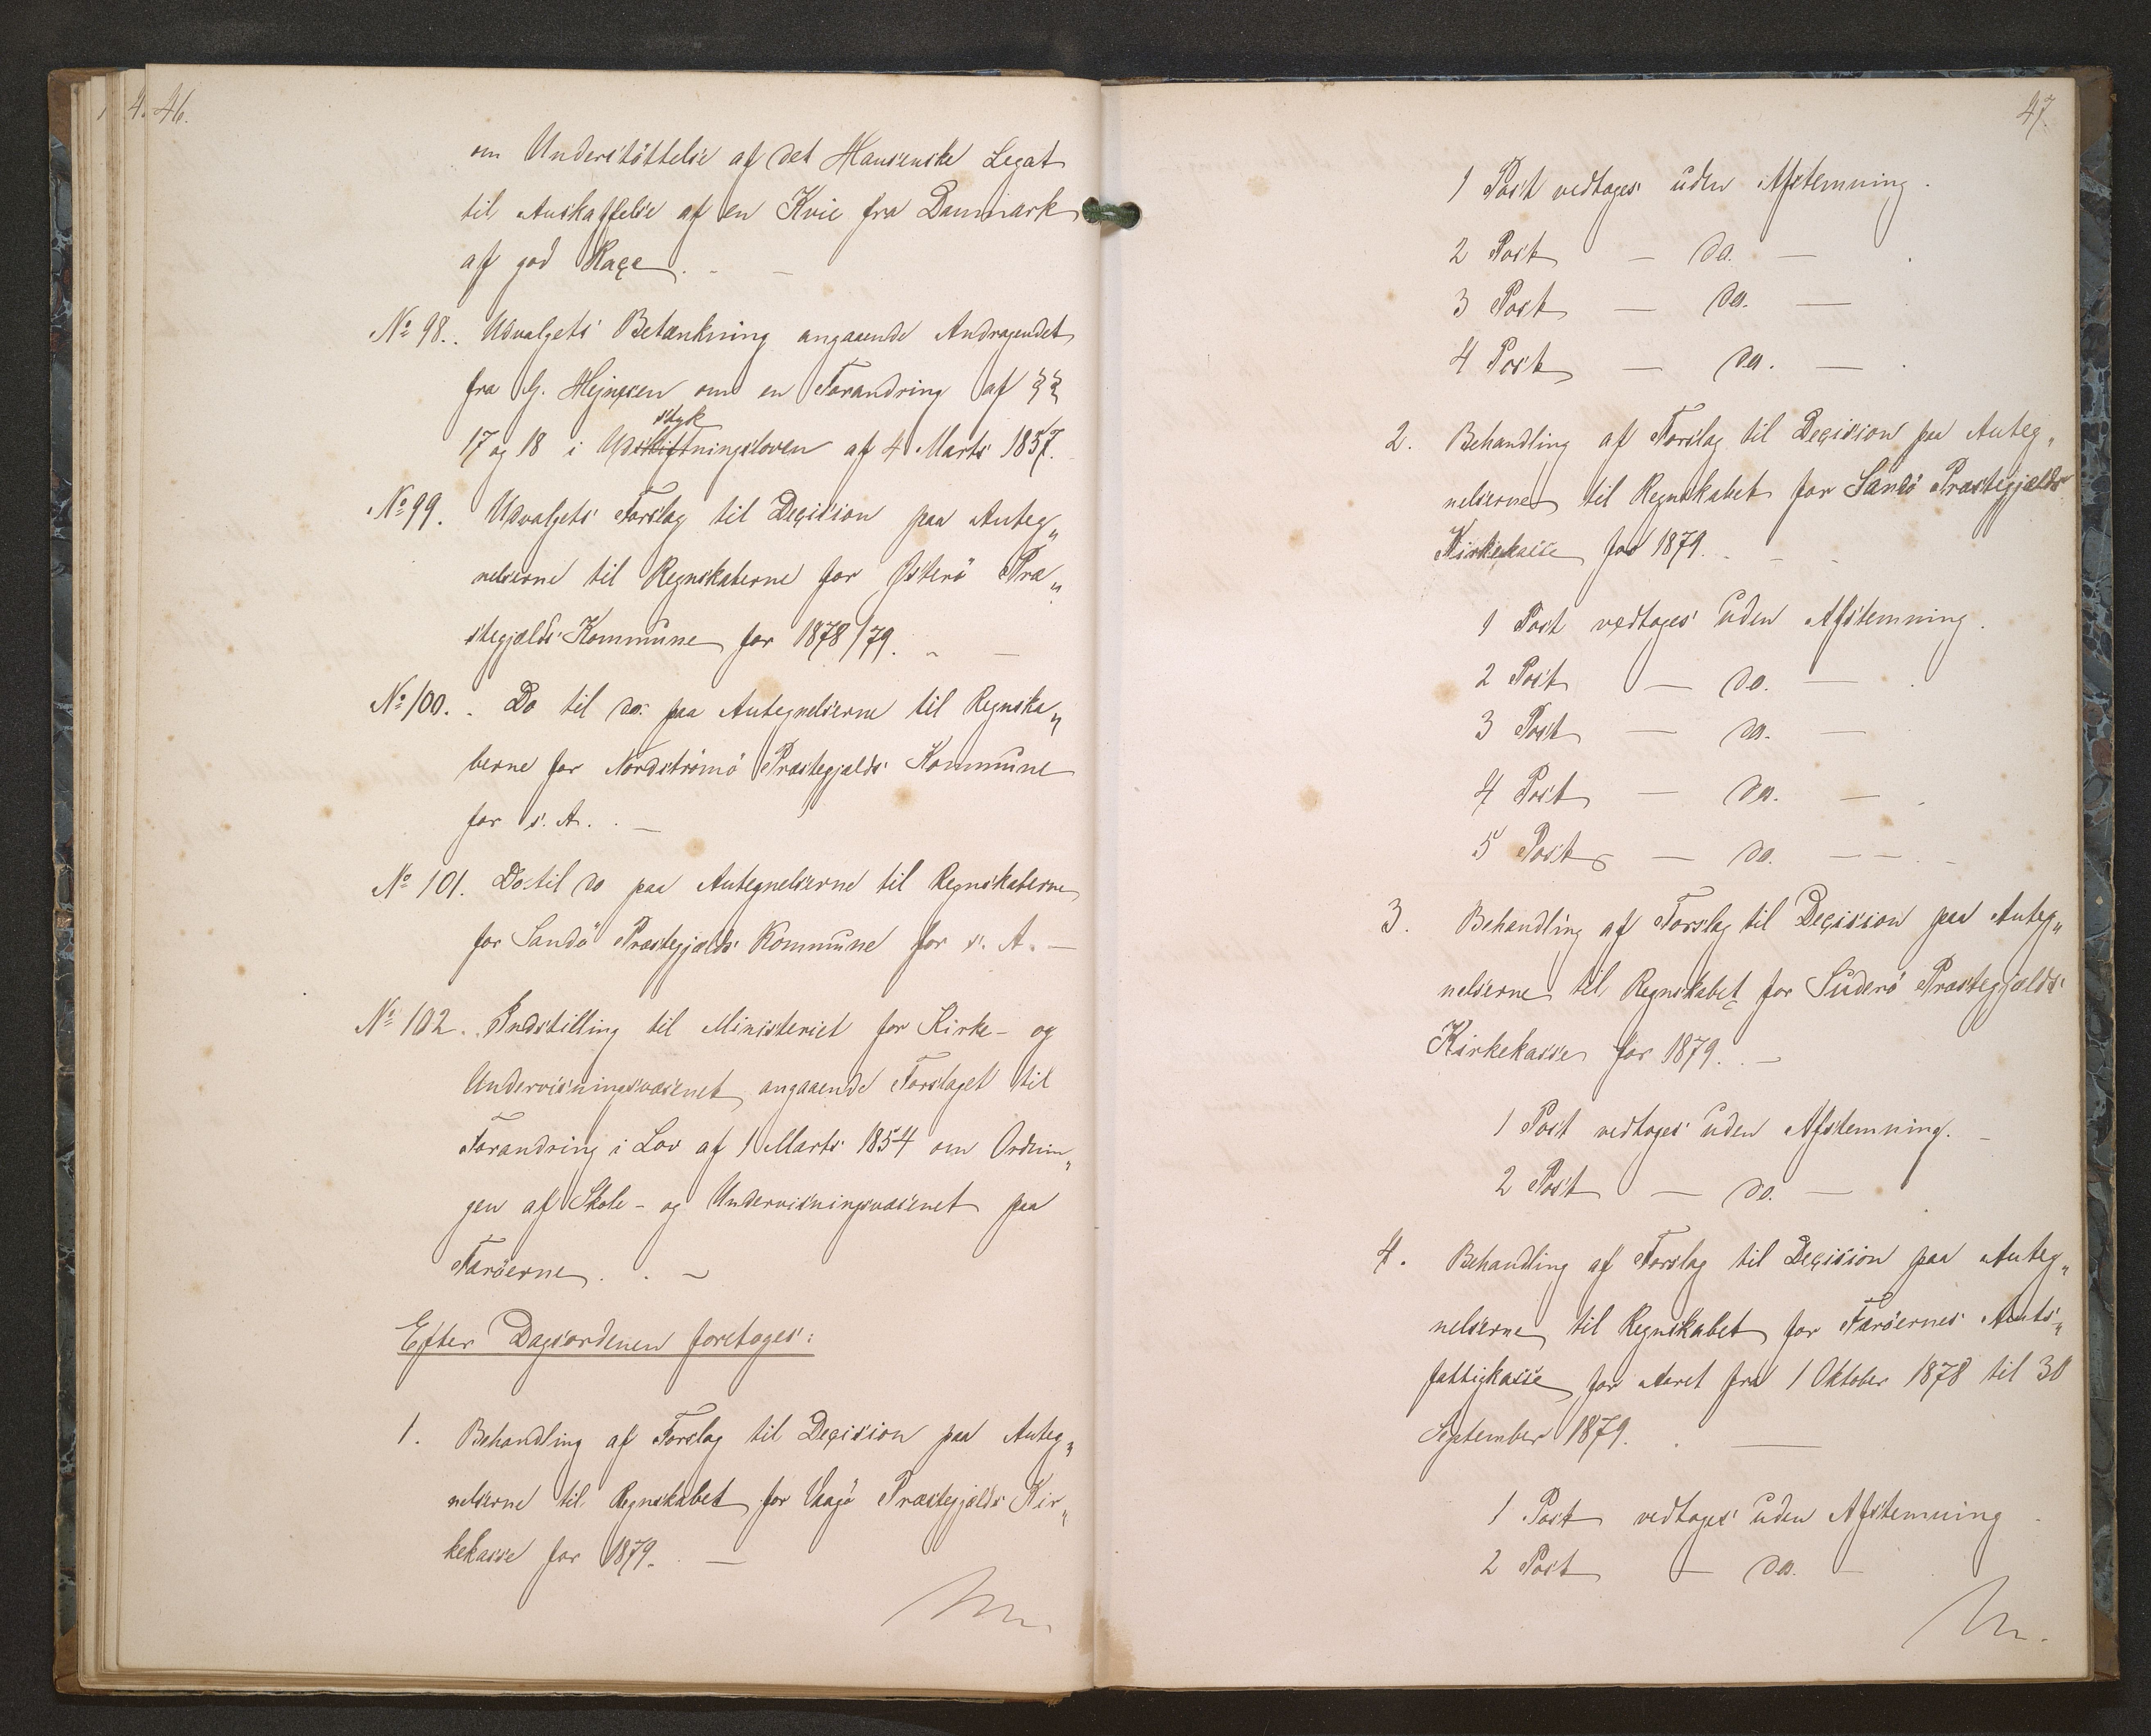 46.
om Understöttelse af det Hansenske Legat
til Anskaffelse af en Kvie fra Danmark
af god Raçe. - -
No 98. Udvalgets Betænkning angaaende Andragendet
fra G. Hejnesen om en Forandring af §§
styk
17 og 18 i Udskiftningsloven af 4 Marts 1857.
No 99. Udvalgets Forslag til Deçision paa Anteg„
nelserne til Regnskaberne for Østerö Præ„
stegjælds Kommune for 1878/79. - -
No 100. Do til do. paa Antegnelserne til Regnska„
berne for Nordströmö Præstegjælds Kommune
for s. A. . -
No 101. Do til do paa Antegnelserne til Regnskaberne
for Sandö Præstegjælds Kommune for s. A. -
No 102. Indstilling til Ministeriet for Kirke- og
Undervisningsvæsenet angaaende Forslaget til
Forandring i Lov af 1 Marts 1854 om Ordnin„
gen af Skole- og Undervisningsvæsenet paa
Færöerne. . -
Efter Dagsordenen foretoges:
1. Behandling af Forslag til Deçision paa Anteg„
nelserne til Regnskabet for Vaagö Præstegjælds Kir„
kekasse for 1879. -
47.
1 Post vedtoges uden Afstemning.
2 Post - do. - .
3 Post - do. -
4 Post - do. - .
2. Behandling af Forslag til Deçision paa Anteg„
nelserne til Regnskabet for Sandö Præstegjælds
Kirkekasse for 1879. - -
1 Post vedtoges uden Afstemning.
2 Post - do. - .
3 Post - do. -
4 Post - do. - .
5 Post - do. - - -
3. Behandling af Forslag til Deçision paa Anteg„
nelserne til Regnskabet for Suderö Præstegjælds
Kirkekasse for 1879. . -
1 Post vedtoges uden Afstemning. -
2 Post - do. -
4. Behandling af Forslag til Deçision paa Anteg„
nelserne til Regnskabet for Færöernes Amts„
fattigkasse for Aaret fra 1 Oktober 1878 til 30
September 1879. . -
1 Post vedtoges uden Afstemning -
2 Post - do. -